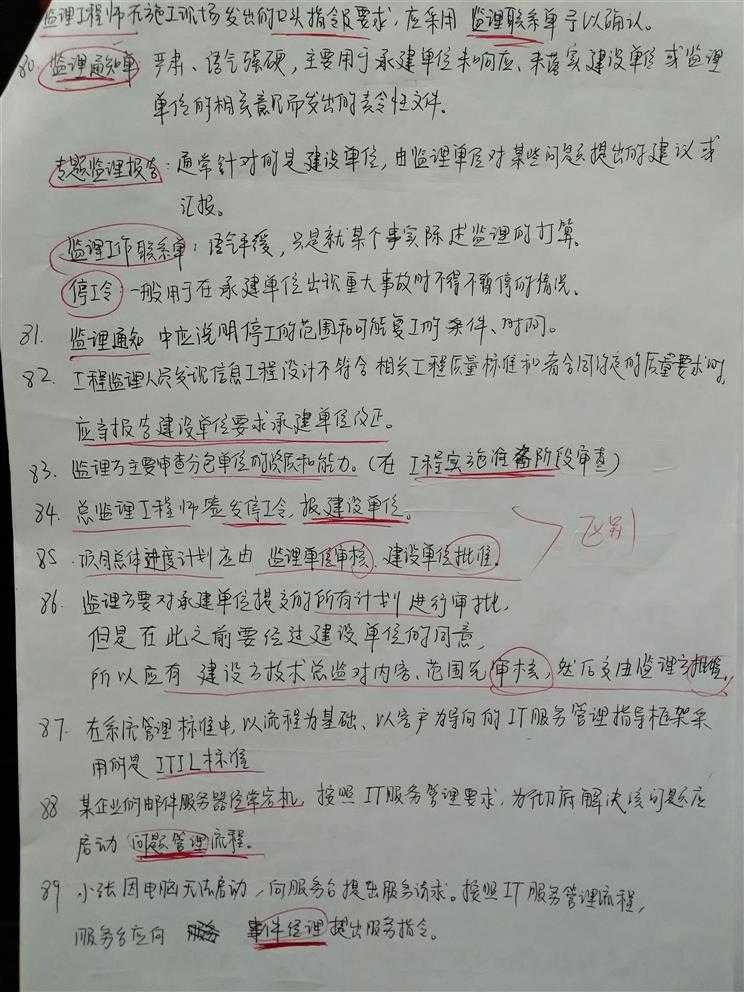 监理工程师在施工现场发出的口头指令及要求，应采用 监理联系单予以确认。
80. 监理通知单 严肃、语气强硬，主要用于承建单位未响应、未落实建设单位或监理
单位的相关意见而发出的责令性文件。
专题监理报告：通常针对的是建设单位，由监理单位对某些问题提出的建议或
汇报。
监理工作联系单：语气平缓，只是就某个事实陈述监理的打算。
停工令：一般用于在承建单位出现重大事故时不得不暂停的情况。
81. 监理通知 中应说明停工的范围和可能复工的条件、时间。
82. 工程监理人员发现信息工程设计不符合相关工程质量标准和者合同约定的质量要求时，
应当报告建设单位要求承建单位改正。
83. 监理方主要审查分包单位的资质和能力。（在 工程实施准备阶段审查）
84. 总监理工程师签发停工令，报建设单位。
85. 项目总体进度计划应由 监理单位审核、建设单位批准。
区别
86. 监理方要对承建单位提交的所有计划进行审批，
但是在此之前要经过建设单位的同意，
所以应有 建设方技术总监对内容、范围先审核，然后交由监理方批准。
87. 在系统管理标准中，以流程为基础、以客户为导向的IT服务管理指导框架采
用的是 ITIL标准
88 某企业的邮件服务器经常宕机，按照IT服务管理要求，为彻底解决该问题应
启动 问题管理流程。
89 小张因电脑无法启动，向服务台提出服务请求。按照IT服务管理流程，
服务台应向 事件经理提出服务指令。